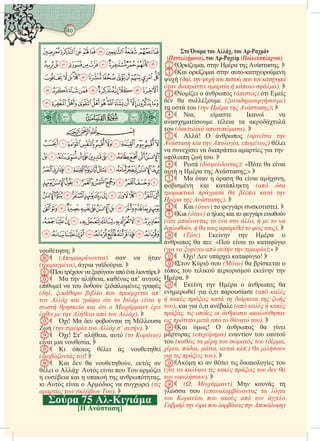 80
فَمَا تَنفَعُهُمْ شَفَٰعَةُ ٱلشَّٰفِعِينَ ٤٨ فَمَا لَهُمْ عَنِ ٱلتَّذْكِرَةِ مُعْرِضِينَ ٤٩
كَأَنَّهُمْ حُمُرٌ مُّسْتَنفِرَةٌ ٥٠ فَرَّتْ مِن قَسْوَرَةٍ ٥١ بَلْ يُرِيدُ
كُلُّ ٱمْرِئٍ مِّنْهُمْ أَن يُؤْتَىٰ صُحُفًا مُّنَشَّرَةً ٥٢ كَلَّا بَل لَّا يَخَافُونَ
ٱلْآخِرَةَ ٥٣ كَلَّا إِنَّهُۥ تَذْكِرَةٌ ٥٤ فَمَن شَآءَ ذَكَرَهُۥ ٥٥ وَمَا يَذْكُرُونَ
إِلَّآ أَن يَشَآءَ ٱللَّهُ هُوَ أَهْلُ ٱلتَّقْوَىٰ وَأَهْلُ ٱلْمَغْفِرَةِ ٥٦
νουθέτηση;
(Απομακρύνονται) σαν να ήταν
(τρομαγμένα), άγρια γαϊδούρια.
Που τρέχουν να ξεφύγουν από ένα λιοντάρι.
Μα την αλήθεια, καθένας απ' αυτούς
επιθυμεί να του δοθούν ξεδιπλωμένες γραφές
(δηλ. ξεκάθαρο βιβλίο που προέρχεται απ'
τον Αλλάχ και γράφει ότι το Ισλάμ είναι η
σωστή θρησκεία και ότι ο Μουχάμμαντ έχει
έρθει με την Αλήθεια από τον Αλλάχ).
Όχι! Μα δεν φοβούνται τη Μέλλουσα
Ζωή (την τιμωρία του Αλλάχ σ' αυτήν).
Όχι! Σ' αλήθεια, αυτό (το Κοράνιο)
είναι μια νουθεσία,
Κι όποιος θέλει ας νουθετηθεί
(διαβάζοντάς το)!
Και δεν θα νουθετηθούν, εκτός αν
θέλει ο Αλλάχ· Αυτός είναι που Του αρμόζει
η ευσέβεια και η υπακοή της ανθρωπότητας,
κι Αυτός είναι ο Αρμόδιος να συγχωρεί (τις
αμαρτίες των σκλάβων Του).
Σούρα 75 Αλ-Κιγιάμα
[Η Ανάσταση]
Στο Όνομα του Αλλάχ, του Αρ-Ραχμάν
(Παντελεήμονα), του Αρ-Ραχείμ (Πολυεύσπλαχνου)
Ορκίζομαι, στην Ημέρα της Ανάστασης.
Και ορκίζομαι στην αυτο-κατηγορούμενη
ψυχή (δηλ. την ψυχή του πιστού, που τον κατηγορεί
όταν διαπράττει αμαρτία ή κάποιο σφάλμα).
Νομίζει ο άνθρωπος (άπιστος) ότι Εμείς
δεν θα συλλέξουμε (ξαναδημιουργήσουμε)
τα οστά του (την Ημέρα της Ανάστασης);
Ναι, είμαστε Ικανοί να
αναστηματίσουμε τέλεια τα ακροδάχτυλά
του (δακτυλικά αποτυπώματα).
Αλλά! Ο άνθρωπος (αρνείται την
Ανάσταση και την Απολογία, επομένως) θέλει
να συνεχίσει να διαπράττει αμαρτίες για την
υπόλοιπη ζωή του.
Ρωτά (ψευδίζοντας): «Πότε θα είναι
αυτή η Ημέρα της Ανάστασης;»
Μα όταν η όραση θα είναι αμήχανη,
φοβισμένη και κατάπληκτη (από όσα
τρομακτικά πράγματα θα βλέπει κατά την
Ημέρα της Ανάστασης),
Και (όταν) το φεγγάρι συσκοτιστεί.
Και (όταν) ο ήλιος και το φεγγάρι ενωθούν
(είτε μπαίνοντας το ένα στο άλλο, ή με το να
διπλωθούν, ή θα τους αφαιρεθεί το φως τους).
(Τότε) Εκείνην την Ημέρα ο
άνθρωπος θα πει: «Πού είναι το καταφύγιο
(για να ξεφύγω από αυτήν την τιμωρία);»
Όχι! Δεν υπάρχει καταφύγιο!
Στον Κύριό σου (Μόνο) θα βρίσκεται ο
τόπος του τελικού περιορισμού εκείνην την
Ημέρα.
Εκείνη την Ημέρα ο άνθρωπος θα
ενημερωθεί για ό,τι παρουσίασε (από καλές
ή κακές πράξεις κατά τη διάρκεια της ζωής
του), και για ό,τι ανέβαλε (από καλές ή κακές
πράξεις, τις οποίες οι άνθρωποι ακολούθησαν
ως πρότυπο μετά από το θάνατό του).
Και όμως! Ο άνθρωπος θα γίνει
μάρτυρας (επιχείρημα) εναντίον του εαυτού
του (καθώς τα μέρη του σώματός του (δέρμα,
χέρια, πόδια, μάτια, αυτιά κλπ.) θα μιλήσουν
για τις πράξεις του).
Ακόμη κι αν θέτει τις δικαιολογίες του
(για να καλύψει τις κακές πράξεις του δεν θα
τον ωφελήσουν).
(Ω, Μουχάμμαντ) Μην κουνάς τη
γλώσσα σου (επαναλαμβάνοντας τα λόγια
του Κορανίου που ακούς από τον άγγελο
Γαβριήλ την ώρα που λαμβάνεις την Αποκάλυψη)